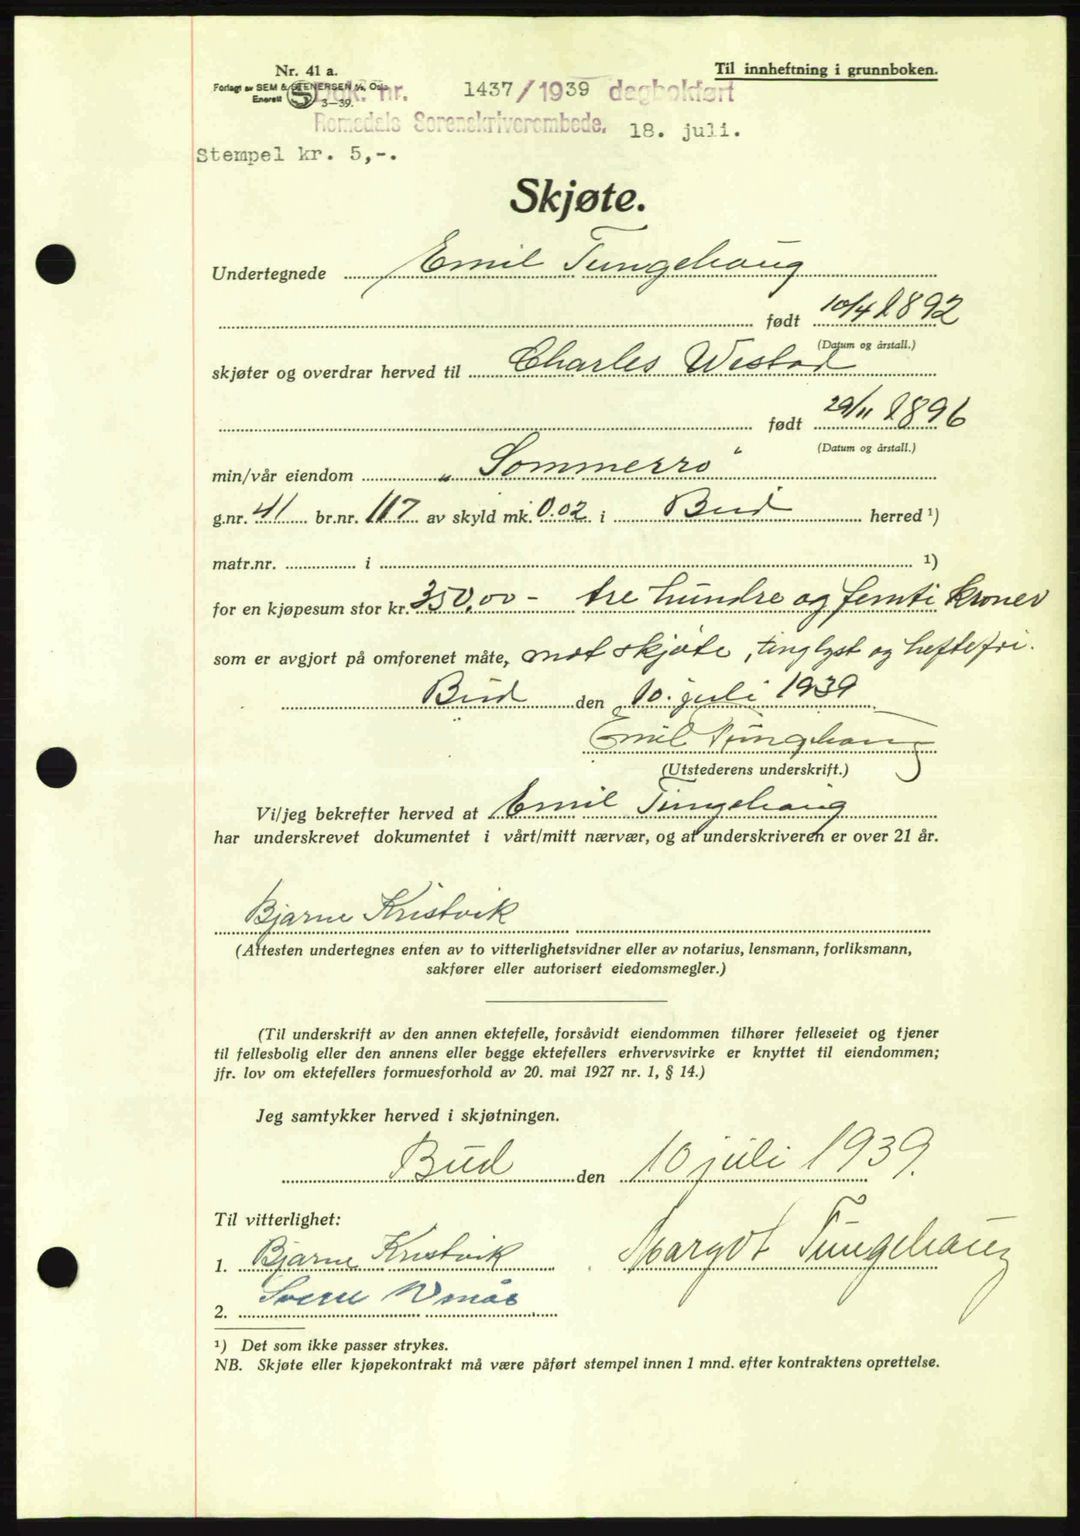 Nr. 41 a.
Til innheftning i grunnboken.
Forlagt av SEM & STENERSEN A/S, Oslo
Enerett S 3—39.
Dok. nr. 1437/1939 dagbokført
Romsdals Sorenskriverembede. 18. juli.
Stempel kr. 5,-.
Skjøte.
Undertegnede Emil Tungehaug
født 10/4 1892
(Datum og årstall.)
skjøter og overdrar herved til Charles Westad
født 29/11 1896
(Datum og årstall.)
min/vår eiendom „Sommerro"
g.nr. 41 br.nr. 117 av skyld mk. 0.02 i Bud herred ¹)
matr.nr. i ¹)
for en kjøpesum stor kr. 350,00 – tre hundre og femti kroner
som er avgjort på omforenet måte, mot skjøte, tinglyst og heftefri.
Bud den 10. juli 1939
Emil Tungehaug
(Utstederens underskrift.)
Vi/jeg bekrefter herved at Emil Tungehaug
har underskrevet dokumentet i vårt/mitt nærvær, og at underskriveren er over 21 år.
Bjarne Kristvik
(Attesten undertegnes enten av to vitterlighetsvidner eller av notarius, lensmann, forliksmann,
sakfører eller autorisert eiedomsmegler.)
(Til underskrift av den annen ektefelle, forsåvidt eiendommen tilhører felleseiet og tjener
til fellesbolig eller den annens eller begge ektefellers erhvervsvirke er knyttet til eiendommen;
jfr. lov om ektefellers formuesforhold av 20. mai 1927 nr. 1, § 14.)
Jeg samtykker herved i skjøtningen.
Bud den 10 juli 1939.
Til vitterlighet:
1. Bjarne Kristvik Margot Tungehaug
2. Sverre
¹) Det som ikke passer strykes.
NB. Skjøte eller kjøpekontrakt må være påført stempel innen 1 mnd. efter kontraktens oprettelse.